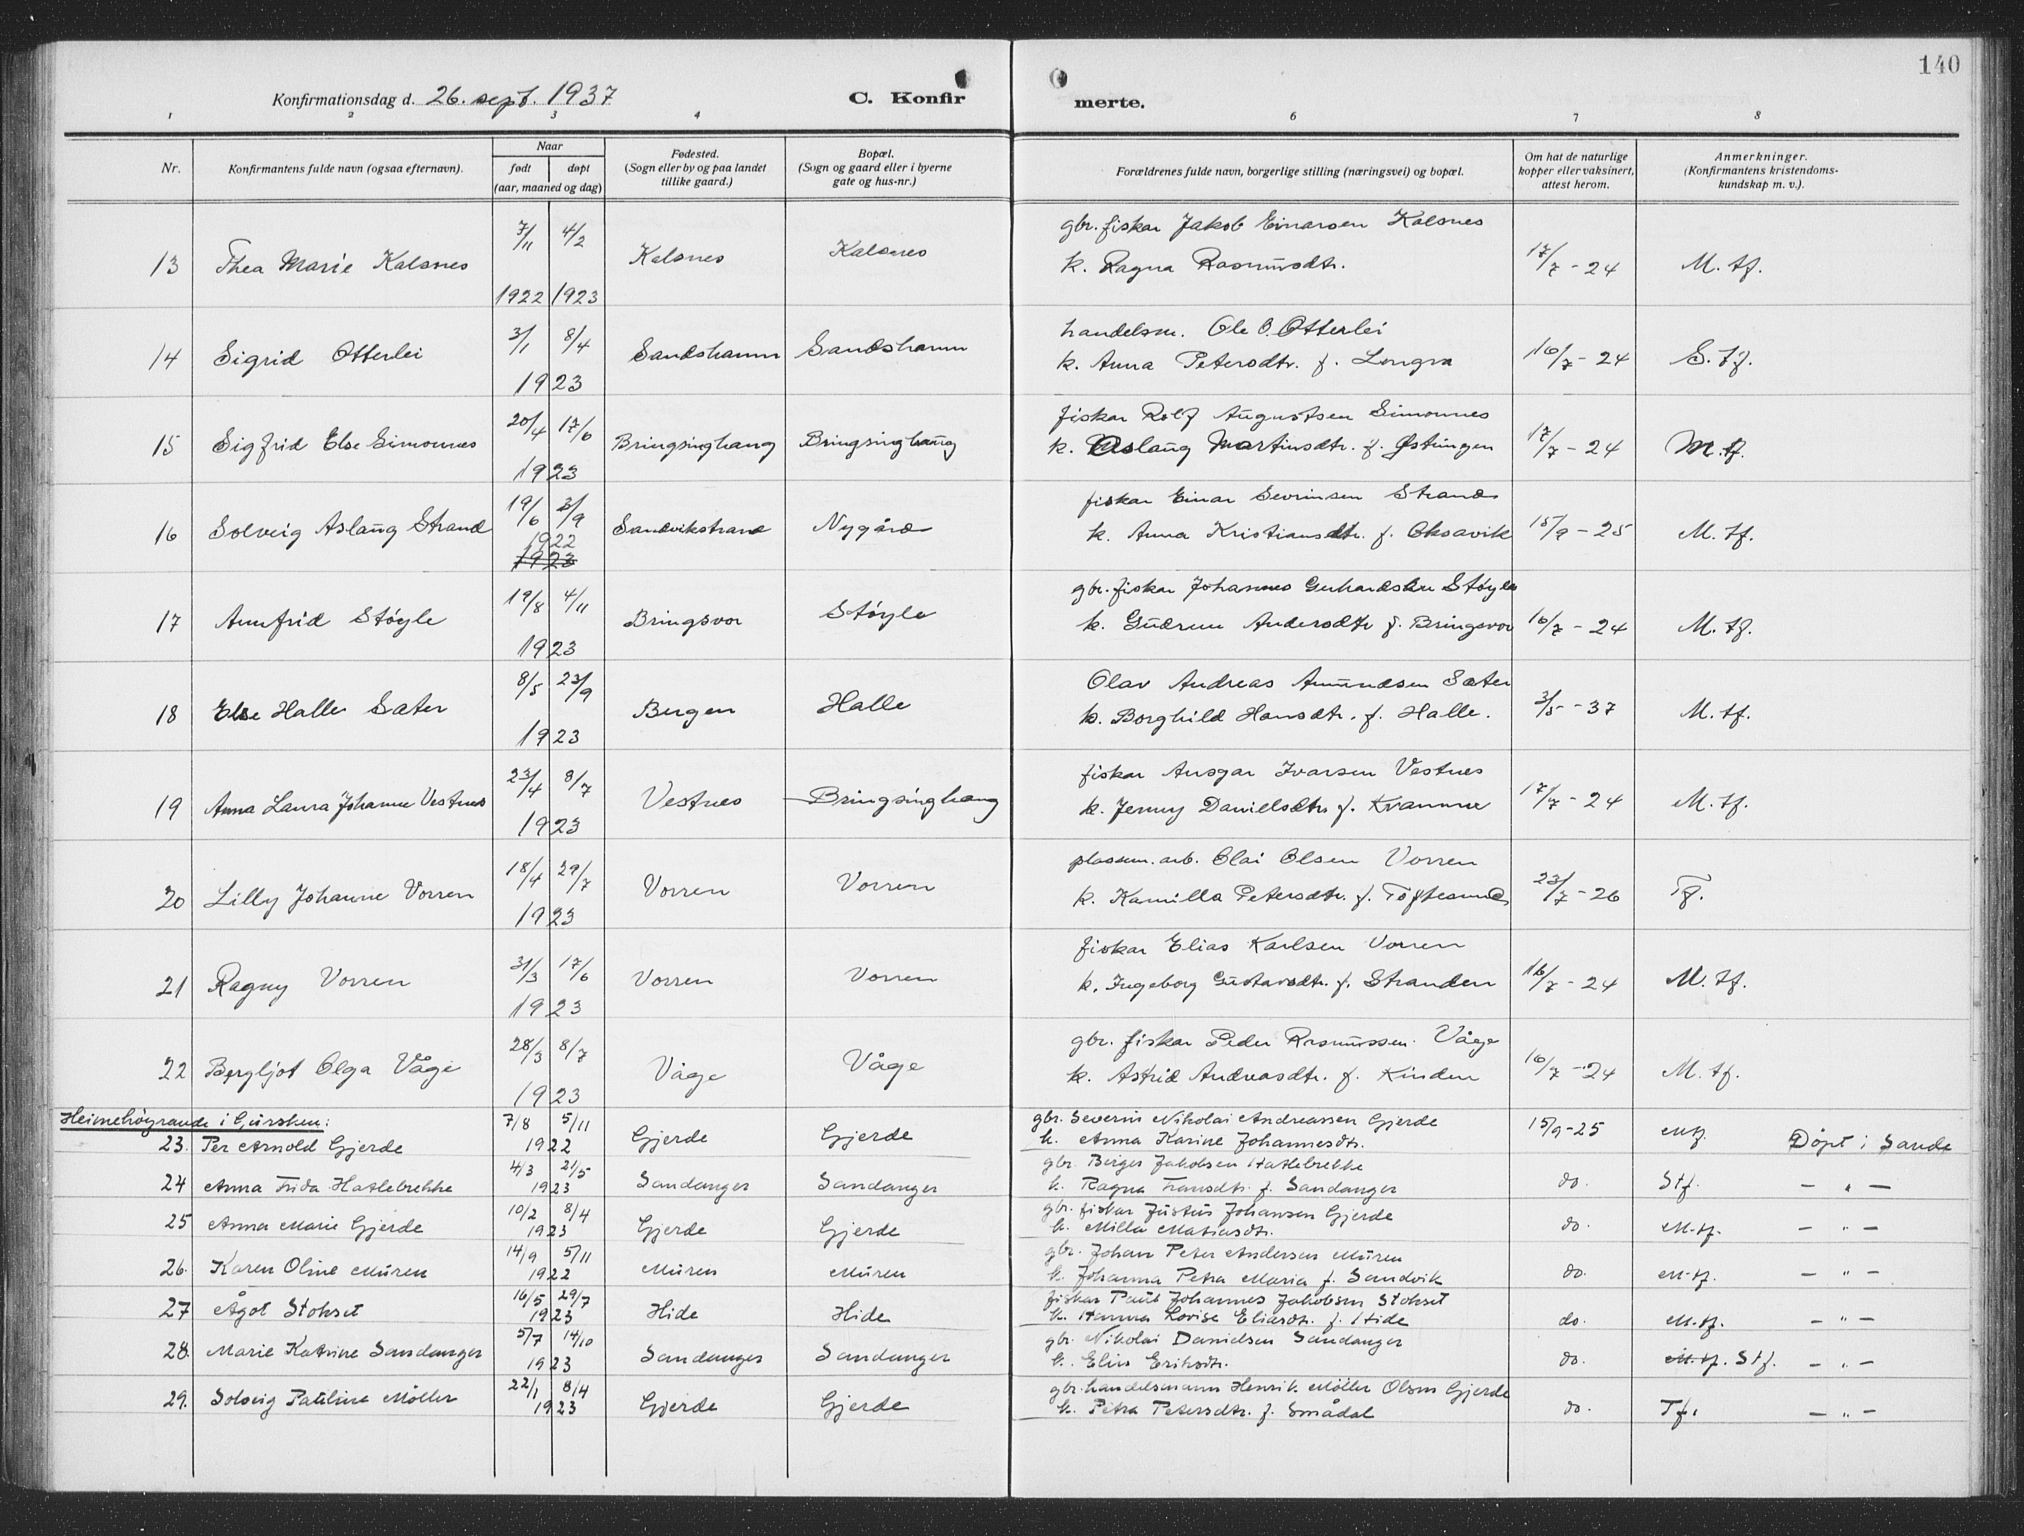 140
Konfirmationsdag d. 26. sept. 1937 C. Konfir merte.
1 2 3 4 6 7 8
Nr. Konfirmantens fulde navn (ogsaa efternavn). Naar født døpt (aar, maaned og dag) Fødested. (Sogn eller by og paa landet tillike gaard.) Bopæl. (Sogn og gaard eller i byerne gate og hus-nr.) Forældrenes fulde navn, borgerlige stilling (næringsvei) og bopæl. Om hat de naturlige kopper eller vaksinert, attest herom. Anmerkninger. (Konfirmantens kristendoms- kundskap m. v.).
7/11 4/2 gbr. fiskar Jakob Einarsen Kalsnes
13 Thea Marie Kalsnes Kalsnes Kalsnes k. Ragna Rasmusdtr. 17/7 - 24 M. tf.
1922 1923
3/1 8/4 handelsm. Ole O. Otterlei
14 Sigrid Otterlei Sandshamn Sandshamn k. Anna Petersdtr. f. Longva 16/7 - 24 S. tf.
1923
20/4 17/6 fiskar Rolf Augustsen Simonnes
15 Sigfrid Else Simonnes Bringsinghaug Bringsinghaug k. Aslaug Martinsdtr. f. Østingen 17/7 - 24 M. tf.
1923
19/6 3/9 fiskar Einar Sevrinsen Strand
16 Solveig Aslaug Strand Sandvikstrand Nygård k. Anna Kristiansdtr. f. Oksavik 15/9 - 25 M. tf.
1922
1923
19/8 4/11 gbr. fiskar Johannes Gerhardsen Støyle
17 Annfrid Støyle Bringsvor Støyle k. Gudrun Andersdtr f. Bringsvor 16/7 - 24 M. tf.
1923
8/5 23/9 Olav Andreas Amundsen Sæter
18 Else Halle Sæter Bergen Halle k. Borghild Hansdtr. f. Halle. 3/5 - 37 M. tf.
1923
23/4 8/7 fiskar Ansgar Ivarsen Vestnes
19 Anna Laura Johanne Vestnes Vestnes Bringsinghaug k. Jenny Danielsdtr f. Kvamme 17/7 - 24 M. tf.
1923
18/4 29/7 plassm. arb. Olai Olsen Vorren
20 Lilly Johanne Vorren Vorren Vorren k. Kamilla Petersdtr. f. Toftesund 23/7 - 26 Tf.
1923
31/3 17/6 fiskar Elias Karlsen Vorren
21 Ragny Vorren Vorren Vorren k. Ingeborg Gustavsdtr. f. Stranden 16/7 - 24 M. tf.
1923
28/3 8/7 gbr. fiskar Peder Rasmussen Våge
22 Bergljot Olga Våge Våge Våge k. Astrid Andreasdtr. f. Kinden 16/7 - 24 M. tf.
1923
Heimehøyrande i Gursken:
7/8 5/11 gbr. Severin Nikolai Andreassen Gjerde
23. Per Arnold Gjerde 1922 Gjerde Gjerde k. Anna Karine Johannesdtr. 15/9-25 Mtf. Döpt i Sande
4/3 21/5 gbr. Birger Jakobsen Hatlebrekke
24 Anna Frida Hatlebrekke 1923 Sandanger Sandanger k. Ragna Fransdtr. f. Sandanger do. Stf. — " —
10/2 8/4 gbr. fiskar Justus Johansen Gjerde
25 Anna Marie Gjerde 1923 Gjerde Gjerde k. Milla Matiasdtr. do. M.tf. — " —
14/9 5/11 gbr. Johan Peter Andersen Muren
26. Karen Oline Muren 1922 Muren Muren k. Johanna Petra Maria f. Sandvik do. M.tf. — " —
16/5 29/7 fiskar Paul Johannes Jakobsen Stokset
27 Ågot Stokset 1923 Hide Hide k. Hanna Lovise Eliasdtr. f. Hide do. M.tf. — " —
5/7 14/10 gbr. Nikolai Danielsen Sandanger
28. Marie Katrine Sandanger 1923 Sandanger Sandanger k. Elin Eriksdtr. do. M.tf. Stf. — " —
22/1 8/4 gbr. handelsmann Henrik Møller Olsen Gjerde
29. Solveig Pauline Møller 1923 Gjerde Gjerde k. Petra Petersdtr. f. Smådal do. Tf. — " —